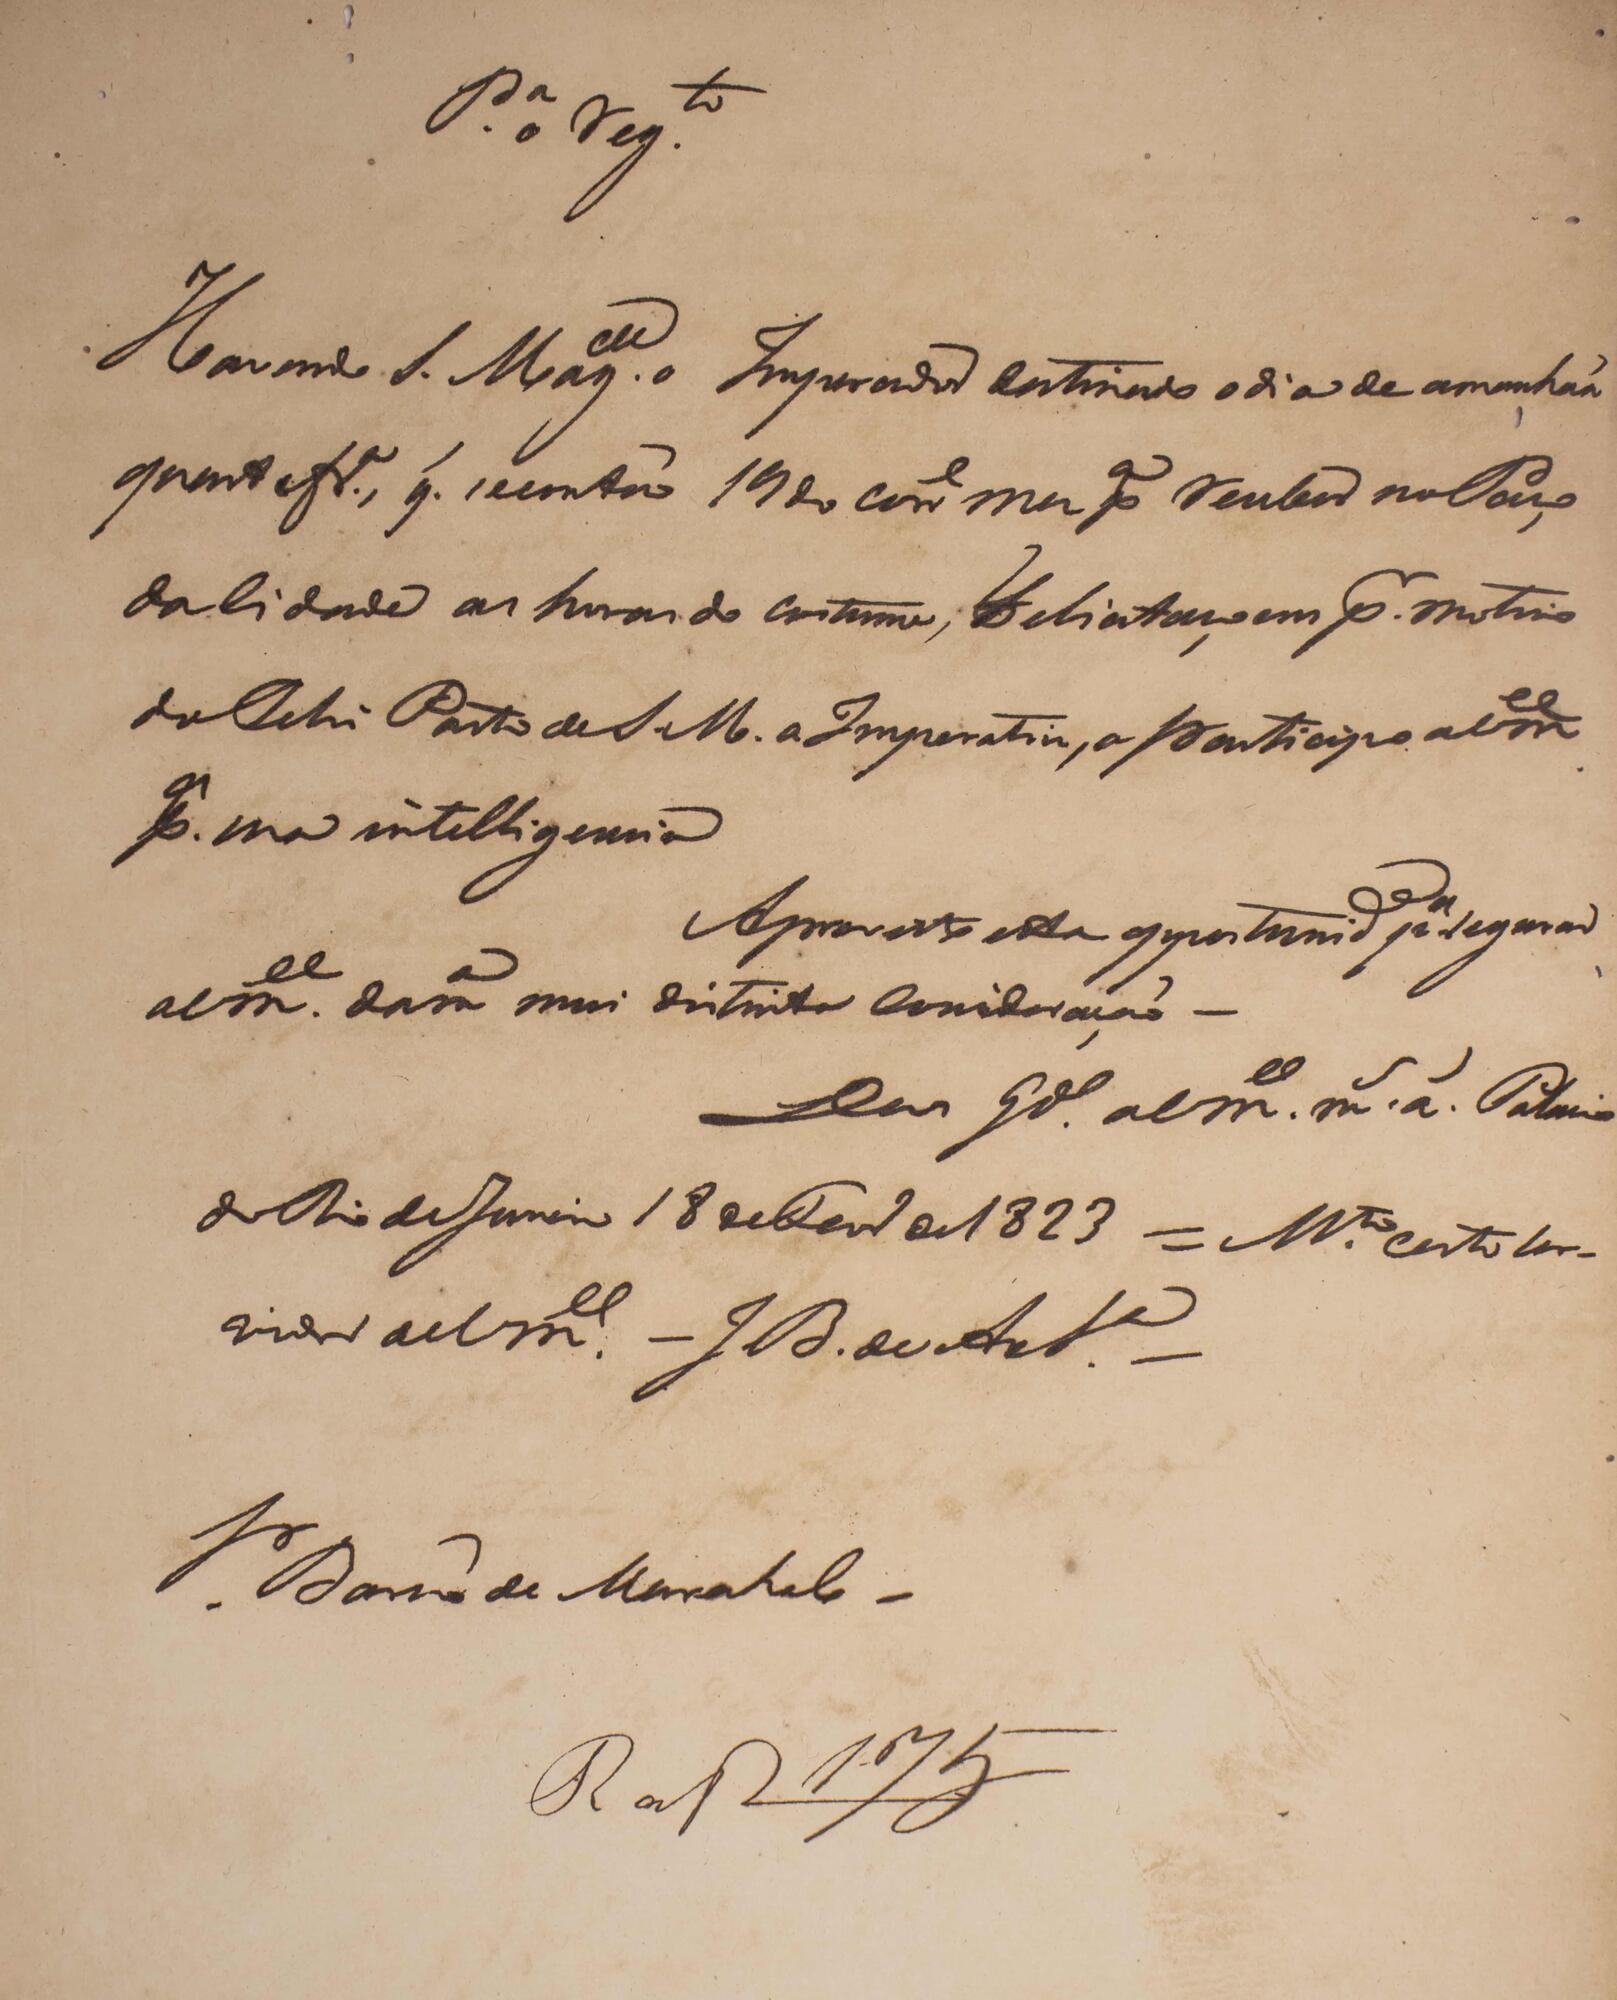 P.ª o Reg.to
Havendo S. Mag.de o Imperador destinado o dia de amanhãa
quarta fr.ª, q. se contão 19 do corre mez pª receber no Paço
da Cidade as horas do costume, Felicitaçoens p.r motivo
do Feliz Parto de S. M. a Imperatriz, o participo a V Ex.
pª. sua intelligencia
Aproveito esta opportunide pª segurar
a V Ex. da mª mui distincta consideração —
Deos Gde. a V Ex. m.s a.s Palacio
do Rio de Janeiro 18 de Fevro de 1823 = M.to certo Ser-
vidor de V Ex. — J B. de And.ª —
Sr. Barão de Marahalo —
R af 175